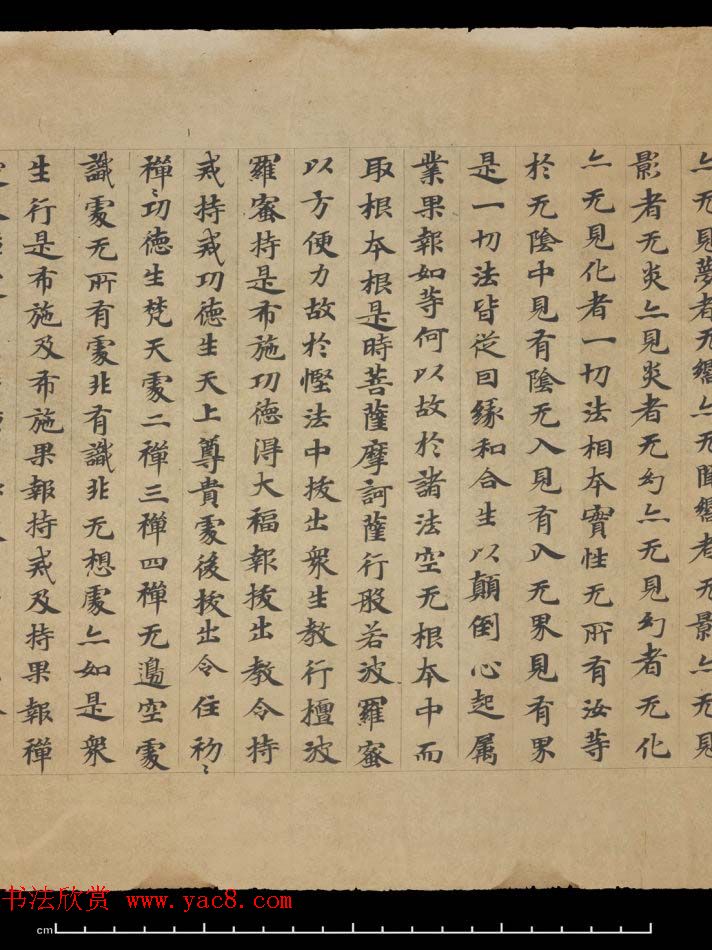 亦无見夢者无嚮亦无聞嚮者无影亦无見
影者无炎亦見炎者无幻亦无見幻者无化
亦无見化者一切法相本實性无所有汝等
於无陰中見有陰无入見有入无界見有界
是一切法皆從因緣和合生以顛倒心起属
業果報如等何以故於諸法空无根本中而
取根本根是時菩薩摩訶薩行般若波羅蜜
以方便力故於慳法中拔出衆生教行檀波
羅蜜持是布施功德得大福報拔出教令持
戒持戒功德生天上尊貴處後拔出令住初〻
禪〻功德生梵天處二禪三禪四禪无邊空處
識處无所有處非有識非无想處亦如是衆
生行是布施及布施果報持戒及持果報禪
书法欣赏 www.yac8.com
cm